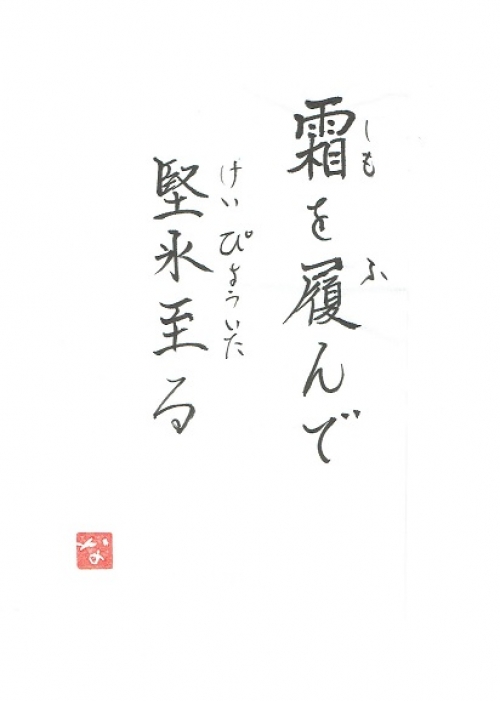 しも ふ
霜を履んで
けい ぴょう いた
堅氷至る